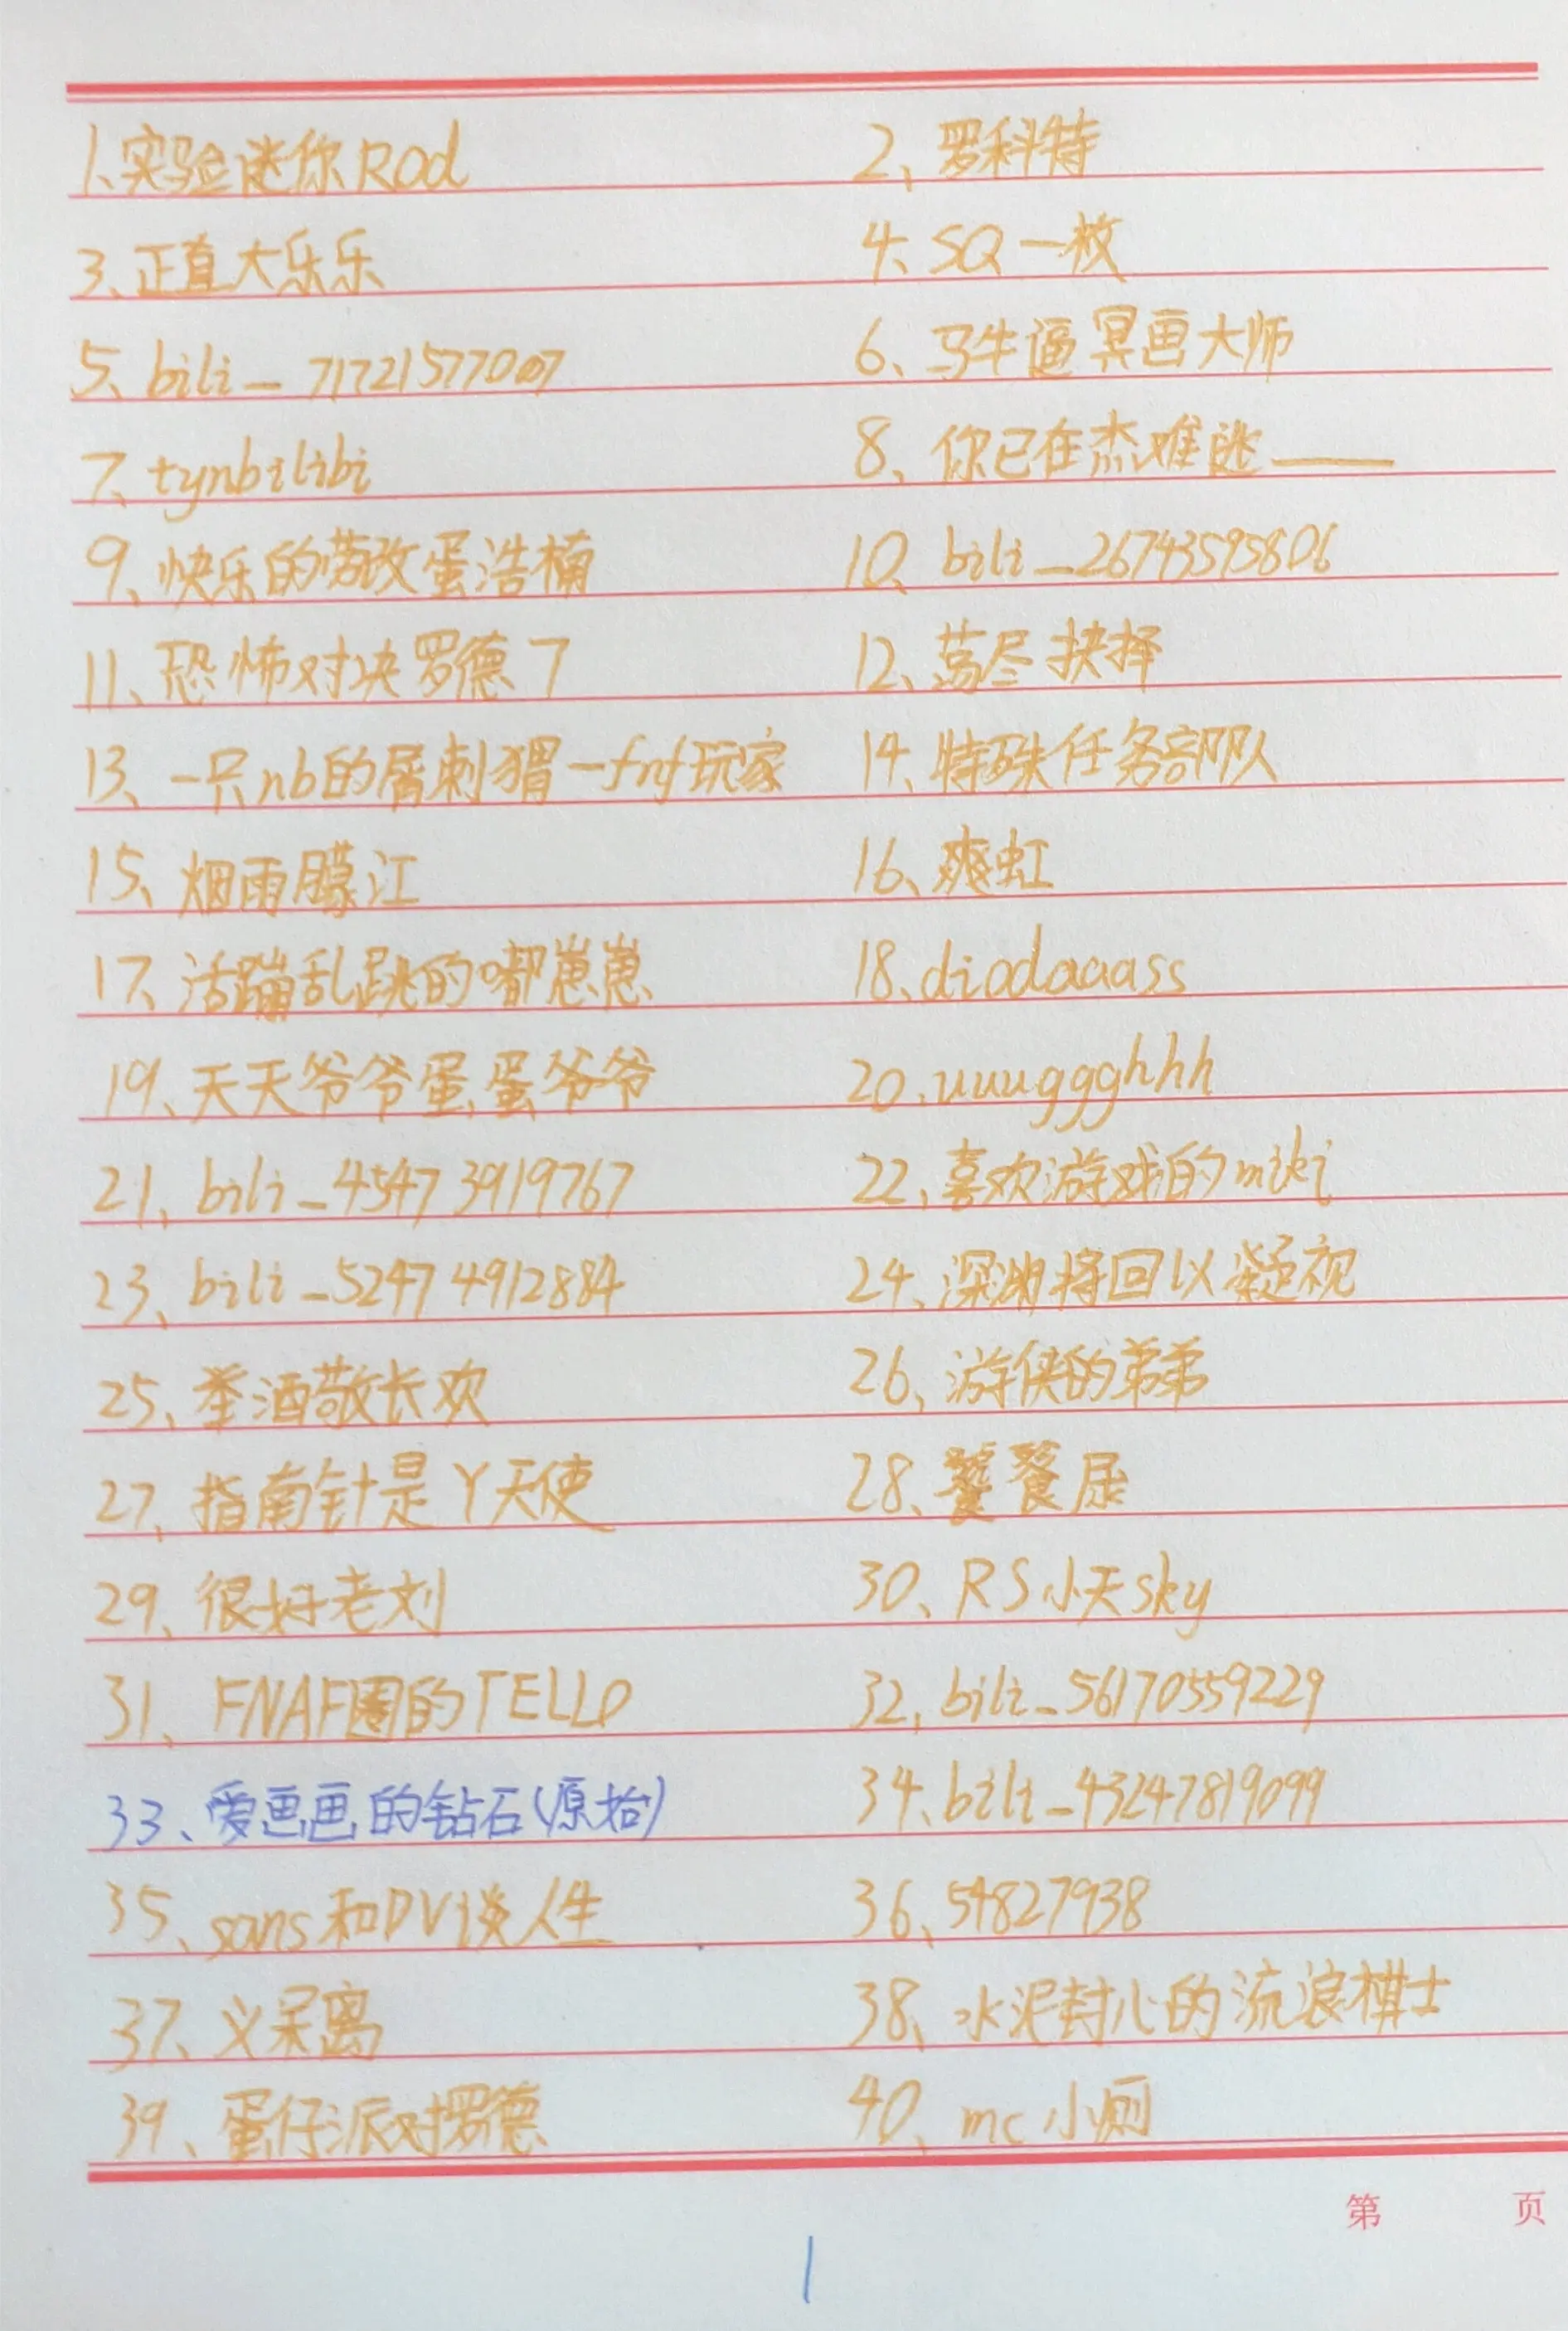 1.实验迷你Rod 2、罗科特
3、正直大乐乐 4、SQ一枚
5、bili_71721577007 6、马牛逼冥画大师
7、tynbilibi 8、你已在杰难逃——
9、快乐的劳改蛋浩楠 10、bili_26743595806
11、恐怖对决罗德了 12、荡尽抉择
13、一只nb的屑刺猬一fnf玩家 14、特殊任务部队
15、烟雨朦江 16、爽虹
17、活蹦乱跳的嘟崽崽 18、diodaaass
19、天天爷爷蛋蛋爷爷 20.uuuggghhh
21、bili_45473919767 22、喜欢游戏的miki
23、bili_52474912884 24、深渊将回以凝视
25、举酒敬长欢 26、游侠的弟弟
27、指南针是Y天使 28、饕餮尿
29、很好老刘 30、RS小天sky
31、FNAF圈的TELLO 32、bili_56170559229
33、爱画画的钻石(原始) 34、bili_43247819099
35、sans和DV谈人生 36、54827938
37、义呆离 38、水泥封心的流浪棋士
39、蛋仔派对罗德 40、mc小厕
第 页
1